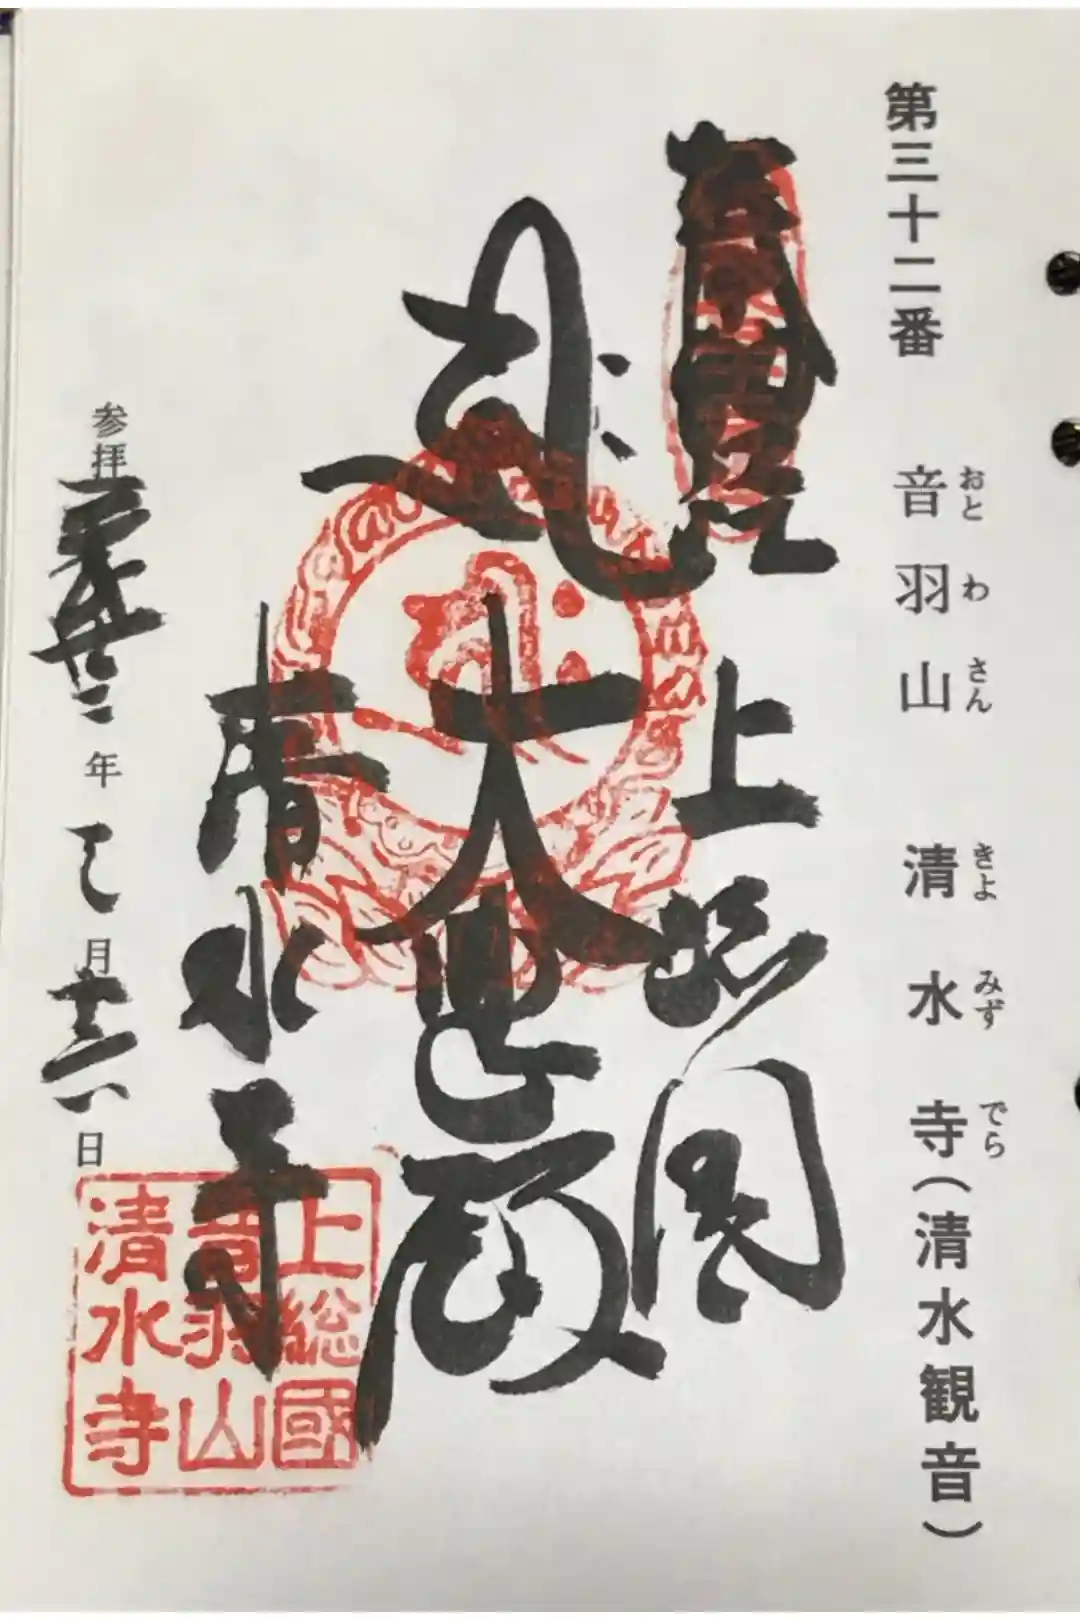 第三十二番 音羽山 清水寺(清水観音)
おとわさん きよみずでら
奉拝
上総国
大悲殿
清水寺
参拝
年
月
日
上総國
音羽山
清水寺